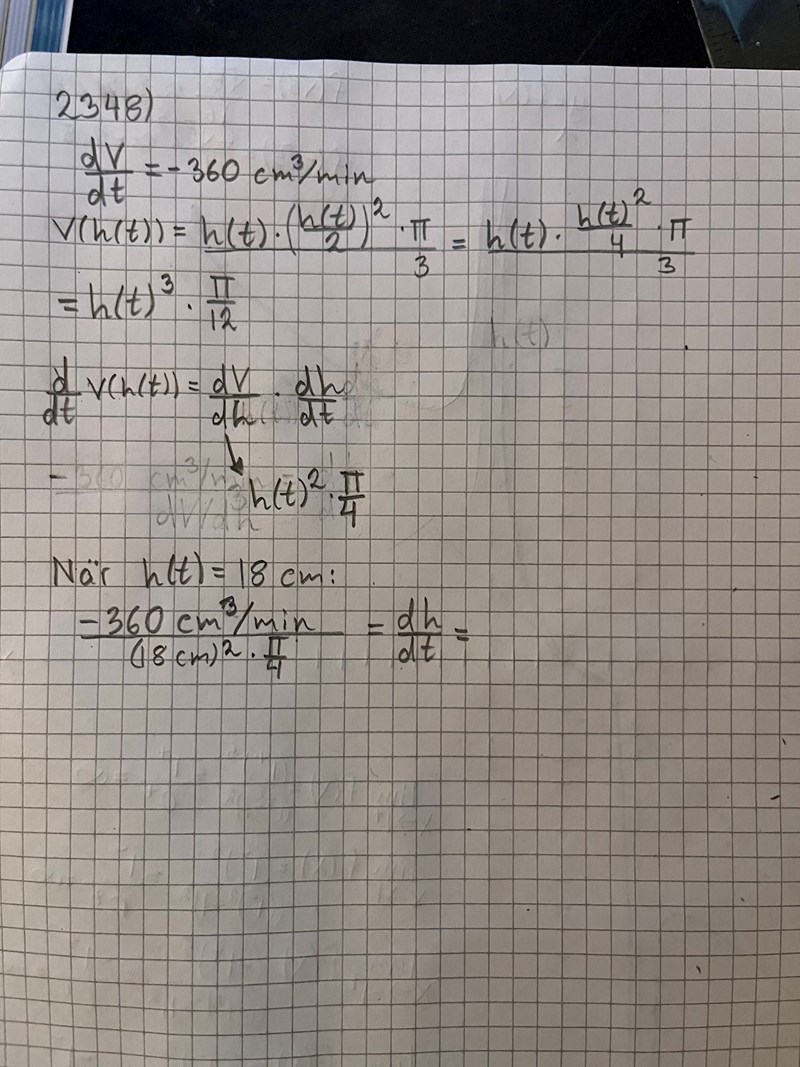 2348)
dV/dt = -360 cm³/min
V(h(t)) = h(t)·(h(t)/2)²·π/3 = h(t)·h(t)²/4·π/3
= h(t)³ · π/12
h(t)
d/dt V(h(t)) = dV/dh · dh/dt
-360 cm³/min
h(t)²·π/4
dV/dh
När h(t) = 18 cm:
-360 cm³/min / (18 cm)²·π/4 = dh/dt =